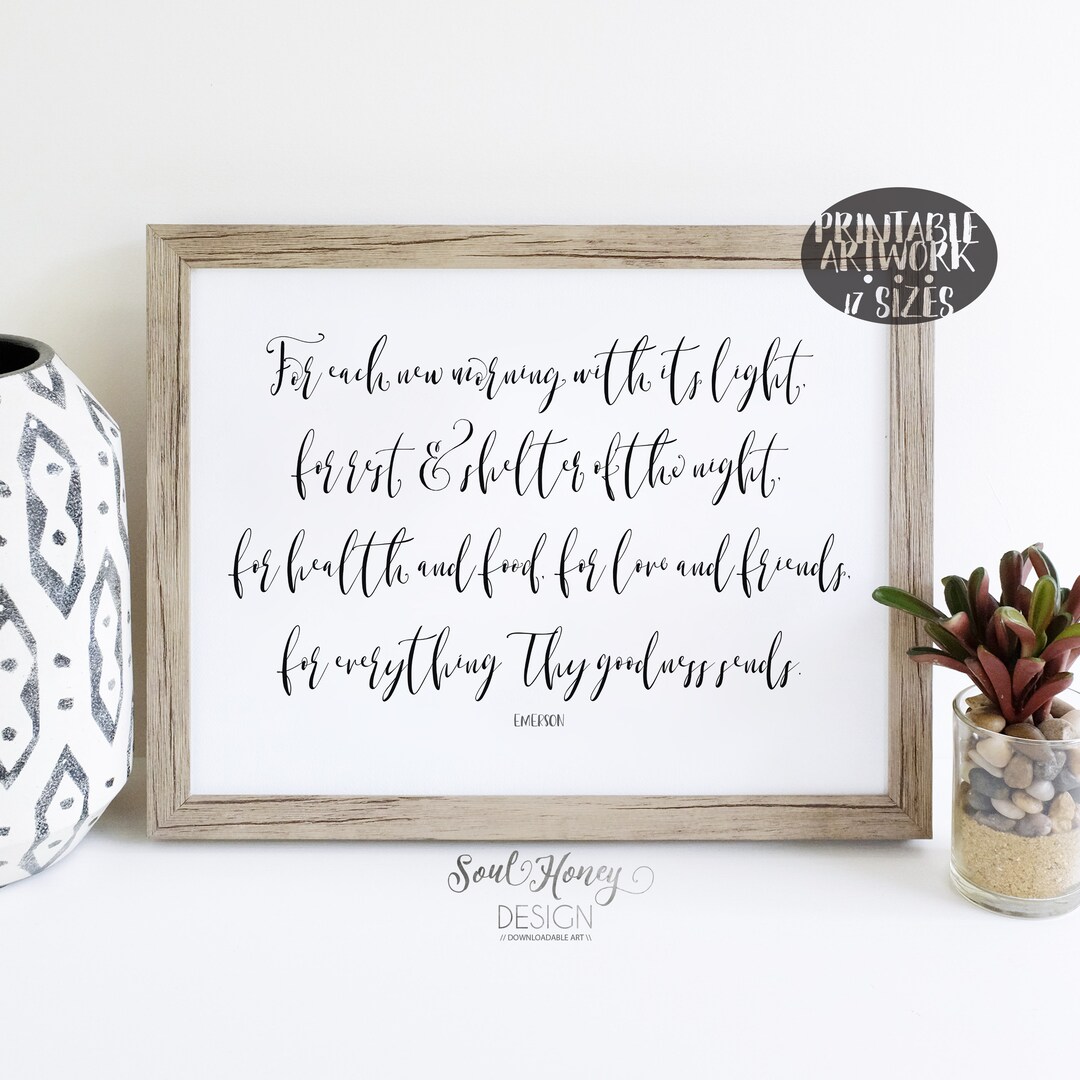 PRINTABLE
ARTWORK
17 SIZES
For each new morning with its light,
for rest & shelter of the night,
for health and food, for love and friends,
for everything Thy goodness sends.
EMERSON
Soul Honey
DESIGN
// DOWNLOADABLE ART \\